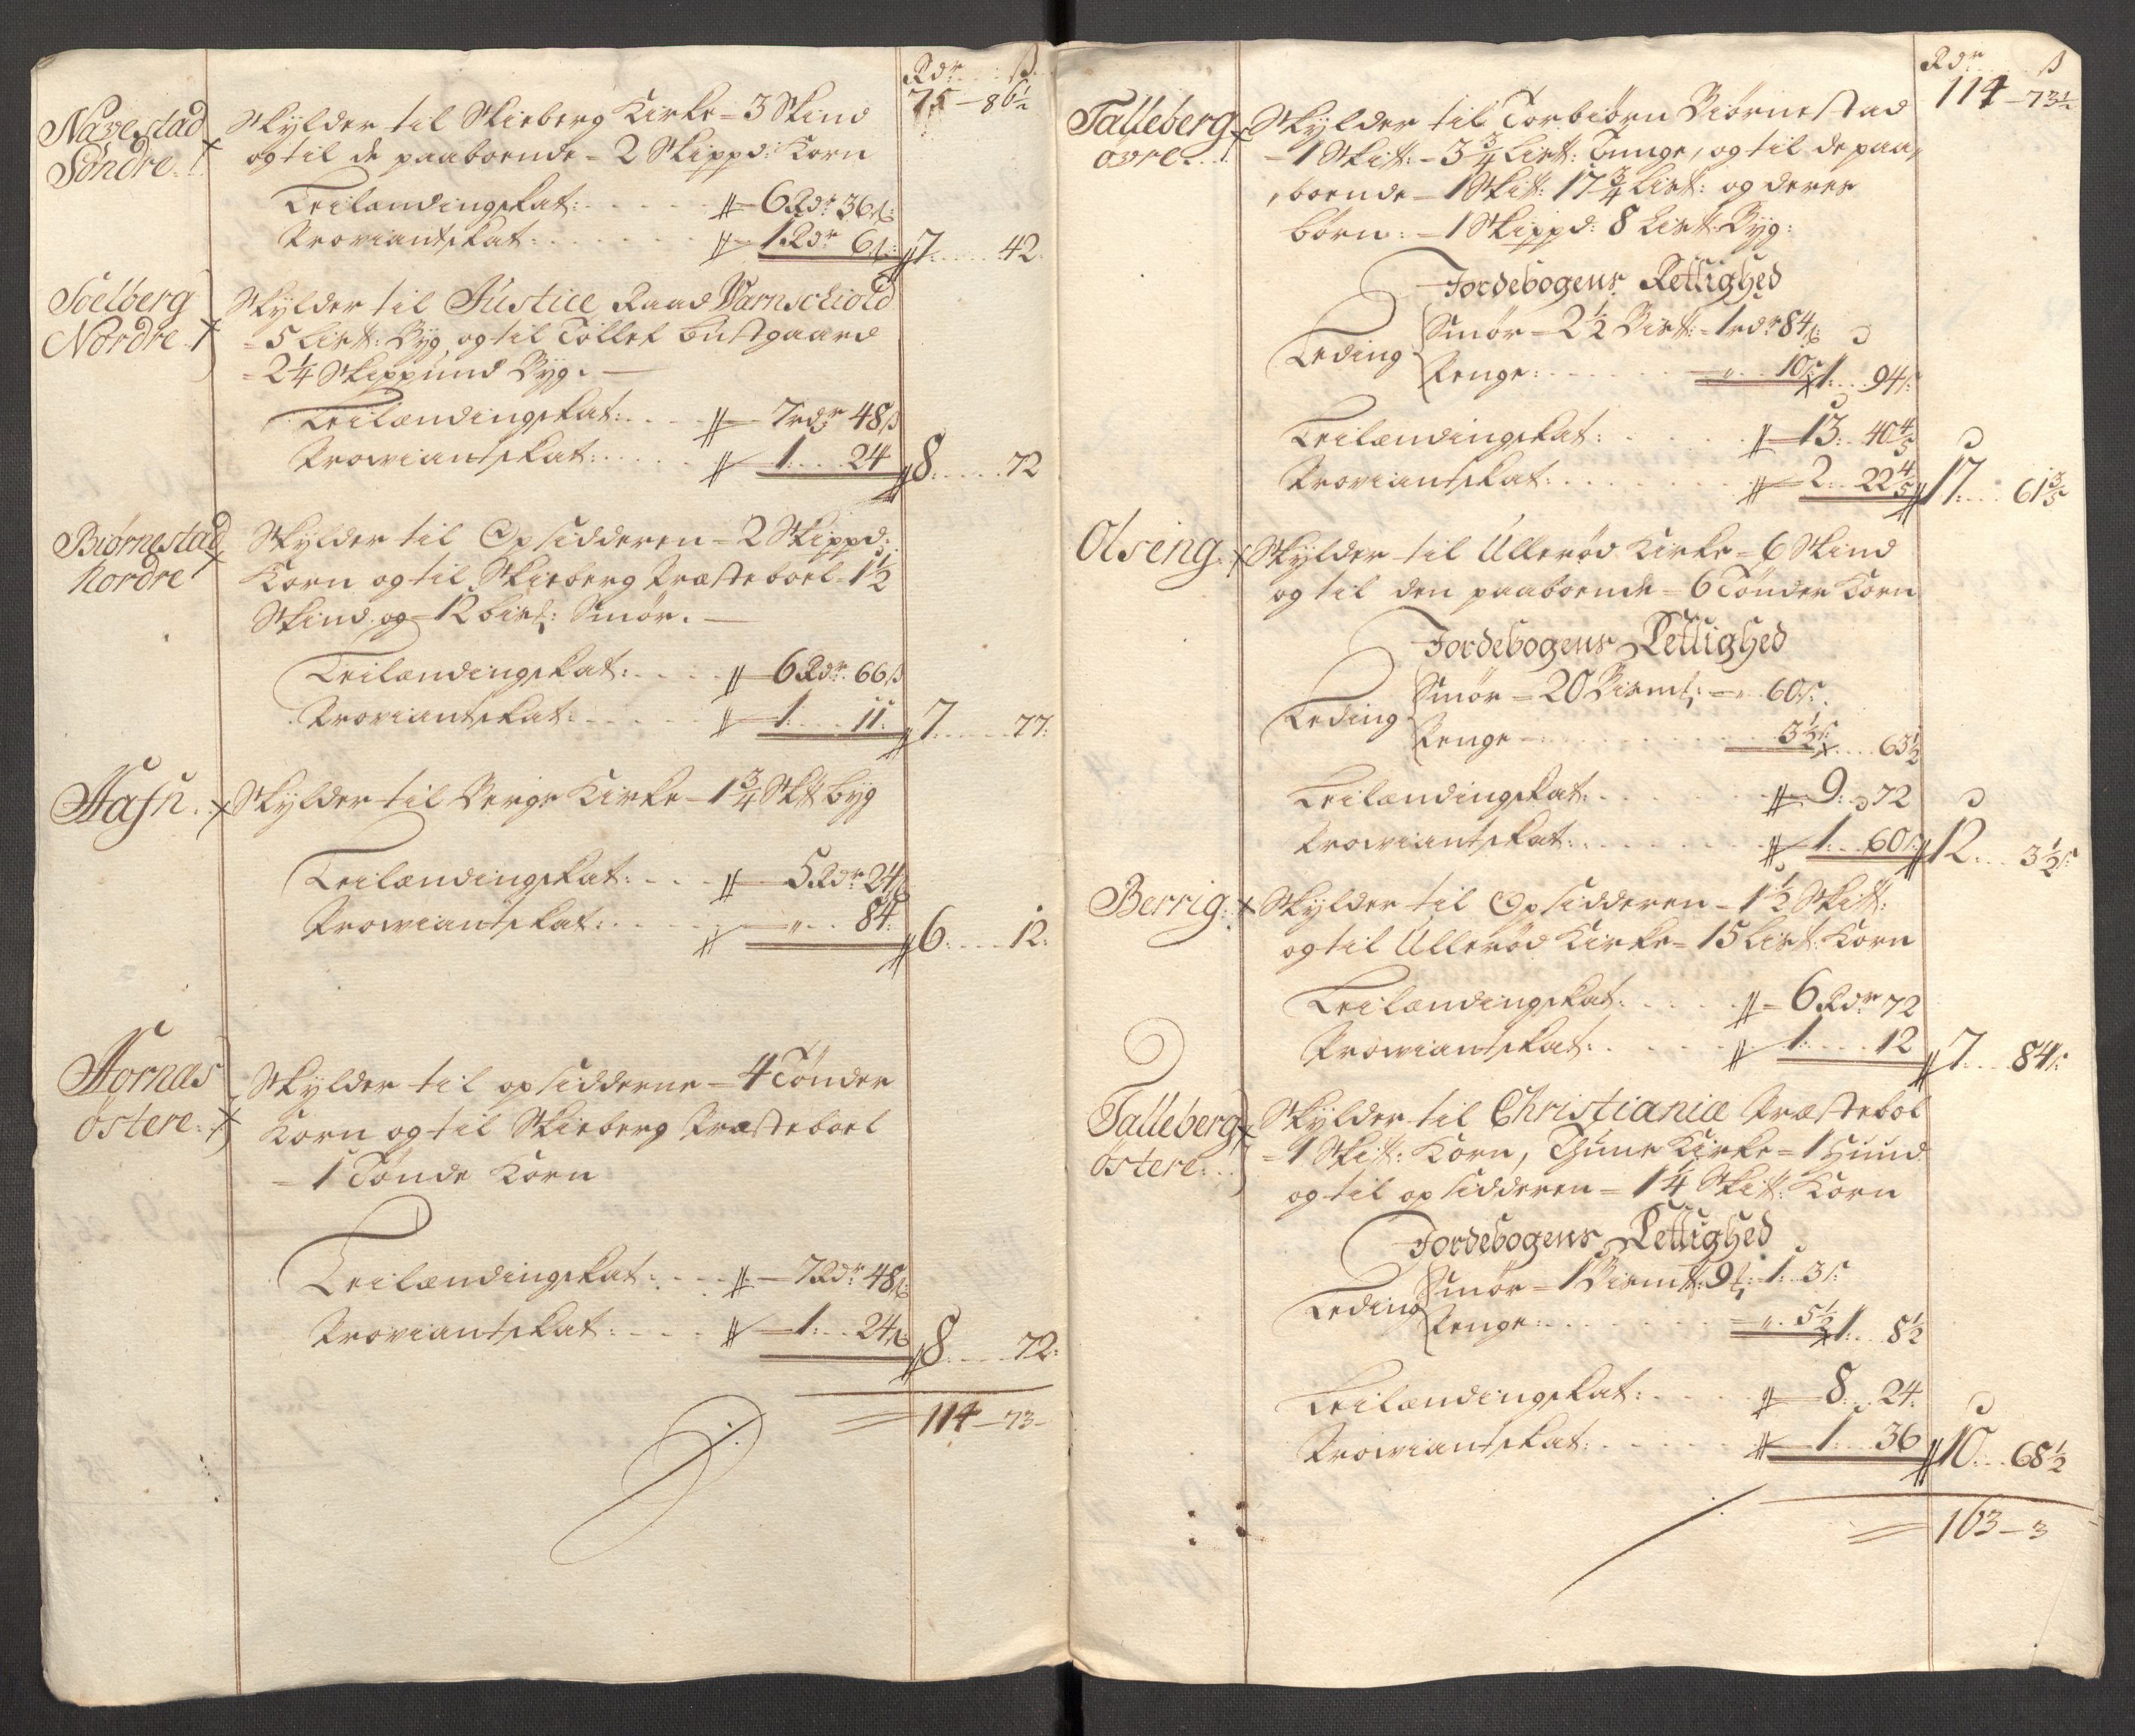 Rdr ß
75 – 86½
Navestad Skylder til Skieberg Kirke = 3 Skind
Söndre og til de paaboende = 2 Skippd: Korn
Leilændingskat: 6 Rdr 36 ß:
Proviantskat: 1 Rdr 6 ß: 7 42.
Soelberg Skylder til Justice Raad Varnschiold
Nordre = 5 List: Byg og til Tollef Bustgaard
= 2¼ Skippund Byg. —
Leilændingskat: 7 rdr 48 ß
Proviantskat: 1 24 8 72
Biørnestad Skylder til Opsidderen = 2 Skippd:
Nordre Korn og til Skieberg Præsteboel = 1½
Skind og = 12 List: Smör. —
Leilændingskat: 6 Rdr. 66 ß
Proviantskat: 1 11. 7 77:
Hafn. Skylder til Berge Kirke = 1¾ Skt byg
Leilændingskat: 5 Rdr 24 ß
Proviantskat: „ 84. 6 12.
Hornæs Skylder til opsidderne = 4 Tönder
östere. Korn og til Skieberg Præsteboel
= 1 Tönde Korn
Leilændingskat: 7 Rdr 48 ß
Proviantskat: 1: 24 ß 8 72.
114 – 73 –
Rdr ß
114 – 73½
Talleberg Skylder til Torbiörn Biörnestad
övre = 1 Skit: = 3¾ List: Tunge, og til de paa,
, boende = 1 Skit: 17¾ List: og deres
börn: = 1 Skippd: 8 List: Byg:
Jordebogens Rettighed
Leding Smör = 2½ Bist: = 1 rdr 84 ß
Penge: „ 10 ß 1 94 ß:
Leilændingskat: 13: 40⅘
Proviantskat: 2 22⅘ 17 61⅗
Olseng Skylder til Ullerød Kirke = 6 Skind
og til den paaboende = 6 Tönder Korn
Jordebogens Rettighed
Leding Smör = 20 Bismk: „ 60 ß.
Penge 3½ ß 63½
Leilændingskat: 9: 72
Proviantskat: 1 60 ß: 12 3½ ß
Berrig: Skylder til Opsidderen = 1½ Skitt:
og til Ullerød Kirke = 15 List: Korn
Leilændingskat: 6 Rdr 72
Proviantskat: 1 12 7 84 ß:
Talleberg Skylder til Christianiæ Præstebol
östere = 1 Skit: Korn, Thune Kirke = 1 Huud
og til opsidderen = 1¼ Skit: Korn
Jordebogens Rettighed
Leding Smör = 1 Bismk: 9 1. 3 ß:
Penge: „ 5½ 1: 8½
Leilændingskat: 8 24.
Proviantskat: 1 36 10 68½
163 – 3